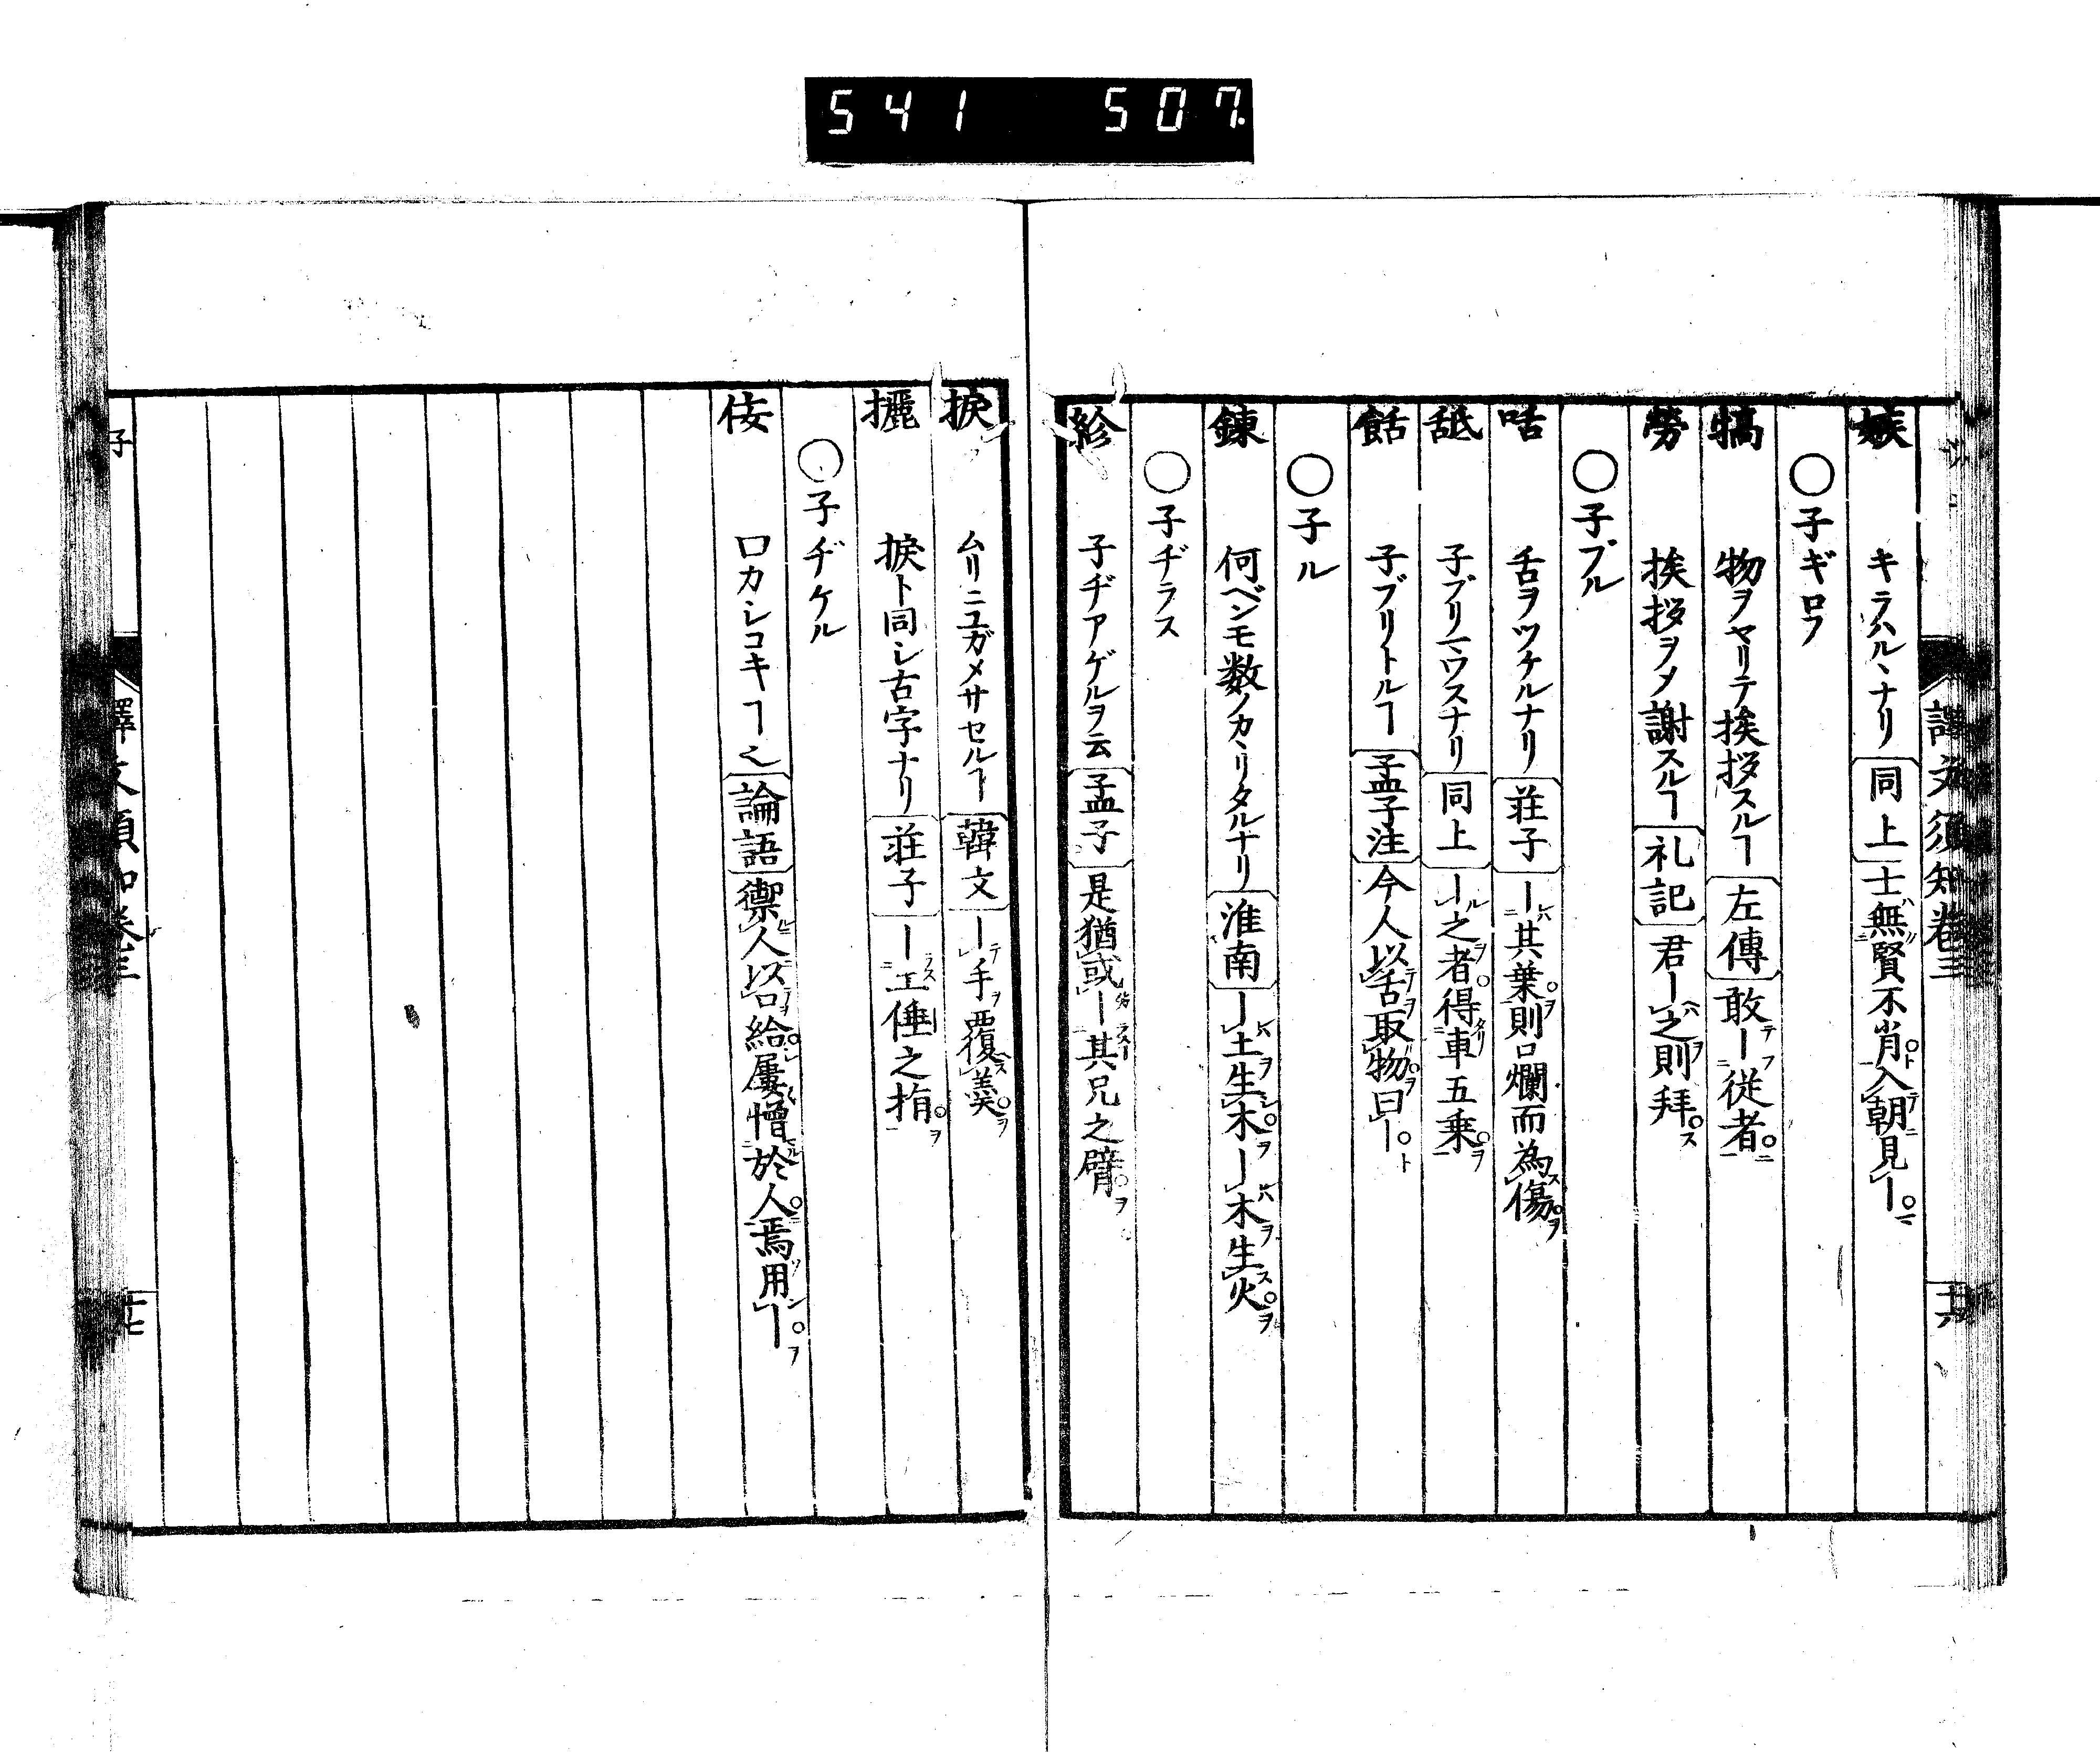 541 507.
譯文須知卷三
廿六
嫉 キラハルヽナリ 同上 士無賢不肖入朝見ー
○子ギロフ
犒 物ヲヤリテ挨拶スルヿ 左傳 敢ー従者
勞 挨拶ヲメ謝スルヿ 礼記 君ー之則拜
○子ブル
咶 舌ヲツケルナリ 荘子 ー其葉則口爛而為傷
舐 子ブリウスナリ 同上 ー之者得車五乗
餂 子ブリトルヿ 孟子注 今人以舌取物曰ー
○子ル
錬 何ベンモ数ノカヽリタルナリ 淮南 ー土生木ー木生火
○子ヂラス
紾 子ヂアゲルヲ云 孟子 是猶或ー其兄之臂
捩 ムリニユガメサセルヿ 韓文 ー手覆羮
攦 捩ト同シ古字ナリ 荘子 ー工倕之指
○子ヂケル
佞 口カシコキヿ也 論語 禦人以口給屢憎於人焉用ー
子
譯文須知卷三
廿七